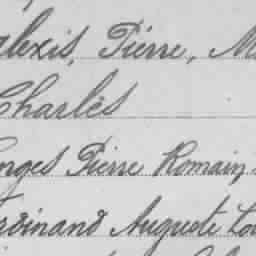 alexis, Pierre, M
Charles
orges Pierre Romain
Ferdinand Auguste Lou